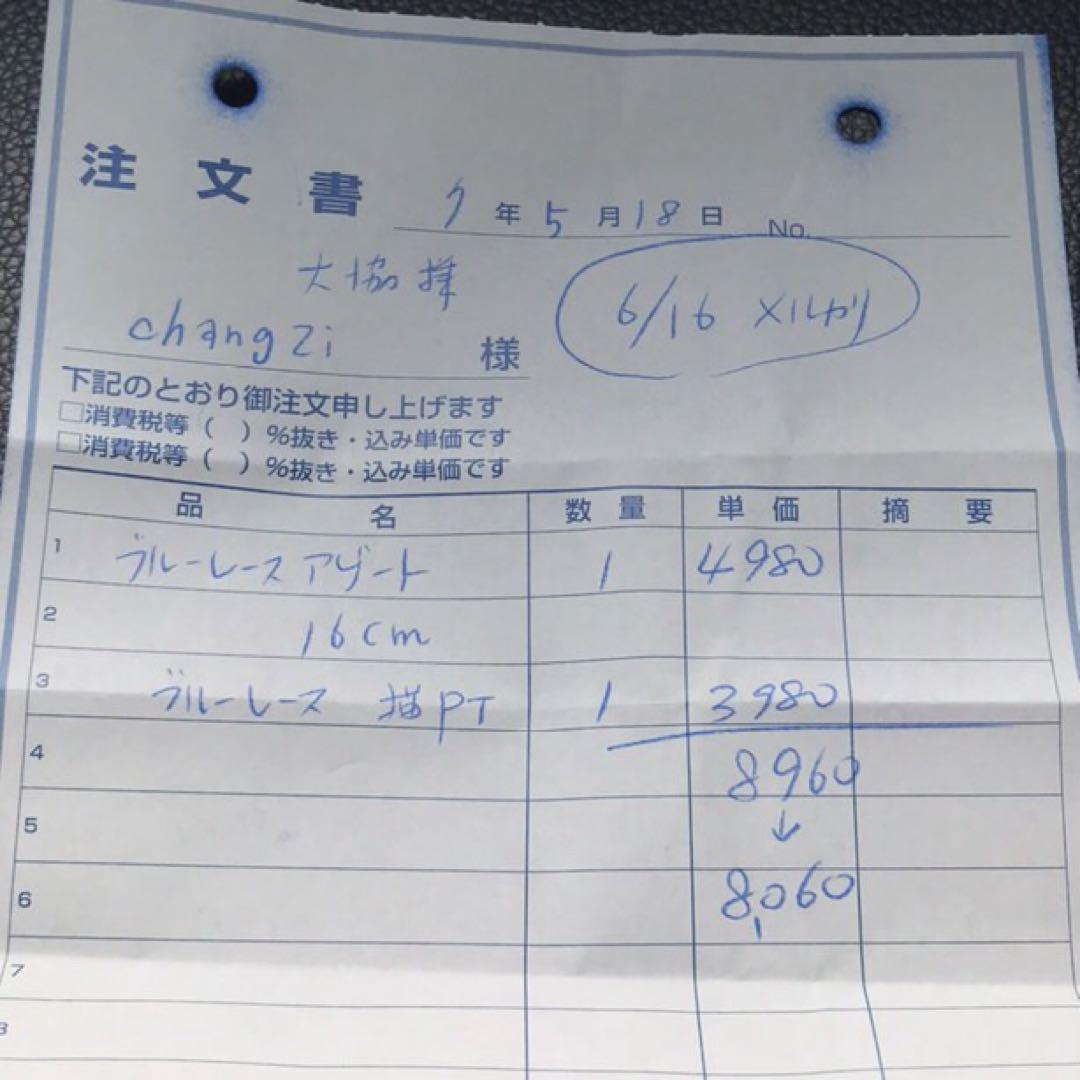 注文書 7年5月18日 No.
大協様
changzi 様
6/16 メルカリ
下記のとおり御注文申し上げます
□消費税等( )%抜き・込み単価です
□消費税等( )%抜き・込み単価です
品名 数量 単価 摘要
1 ブルーレースアゲート 1 4980
2 16cm
3 ブルーレース 猫PT 1 3980
4 8960
5 ↓
6 8,060
7